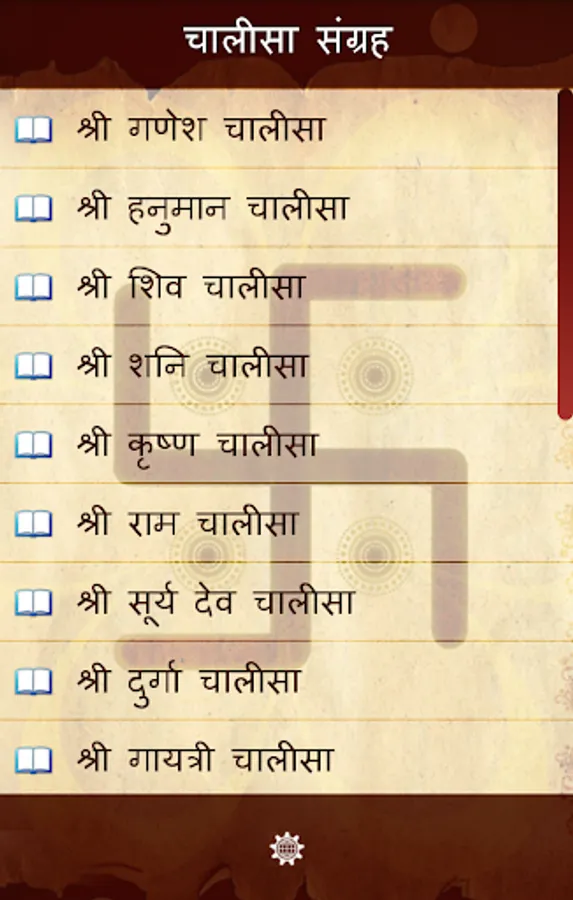 चालीसा संग्रह
श्री गणेश चालीसा
श्री हनुमान चालीसा
श्री शिव चालीसा
श्री शनि चालीसा
श्री कृष्ण चालीसा
श्री राम चालीसा
श्री सूर्य देव चालीसा
श्री दुर्गा चालीसा
श्री गायत्री चालीसा